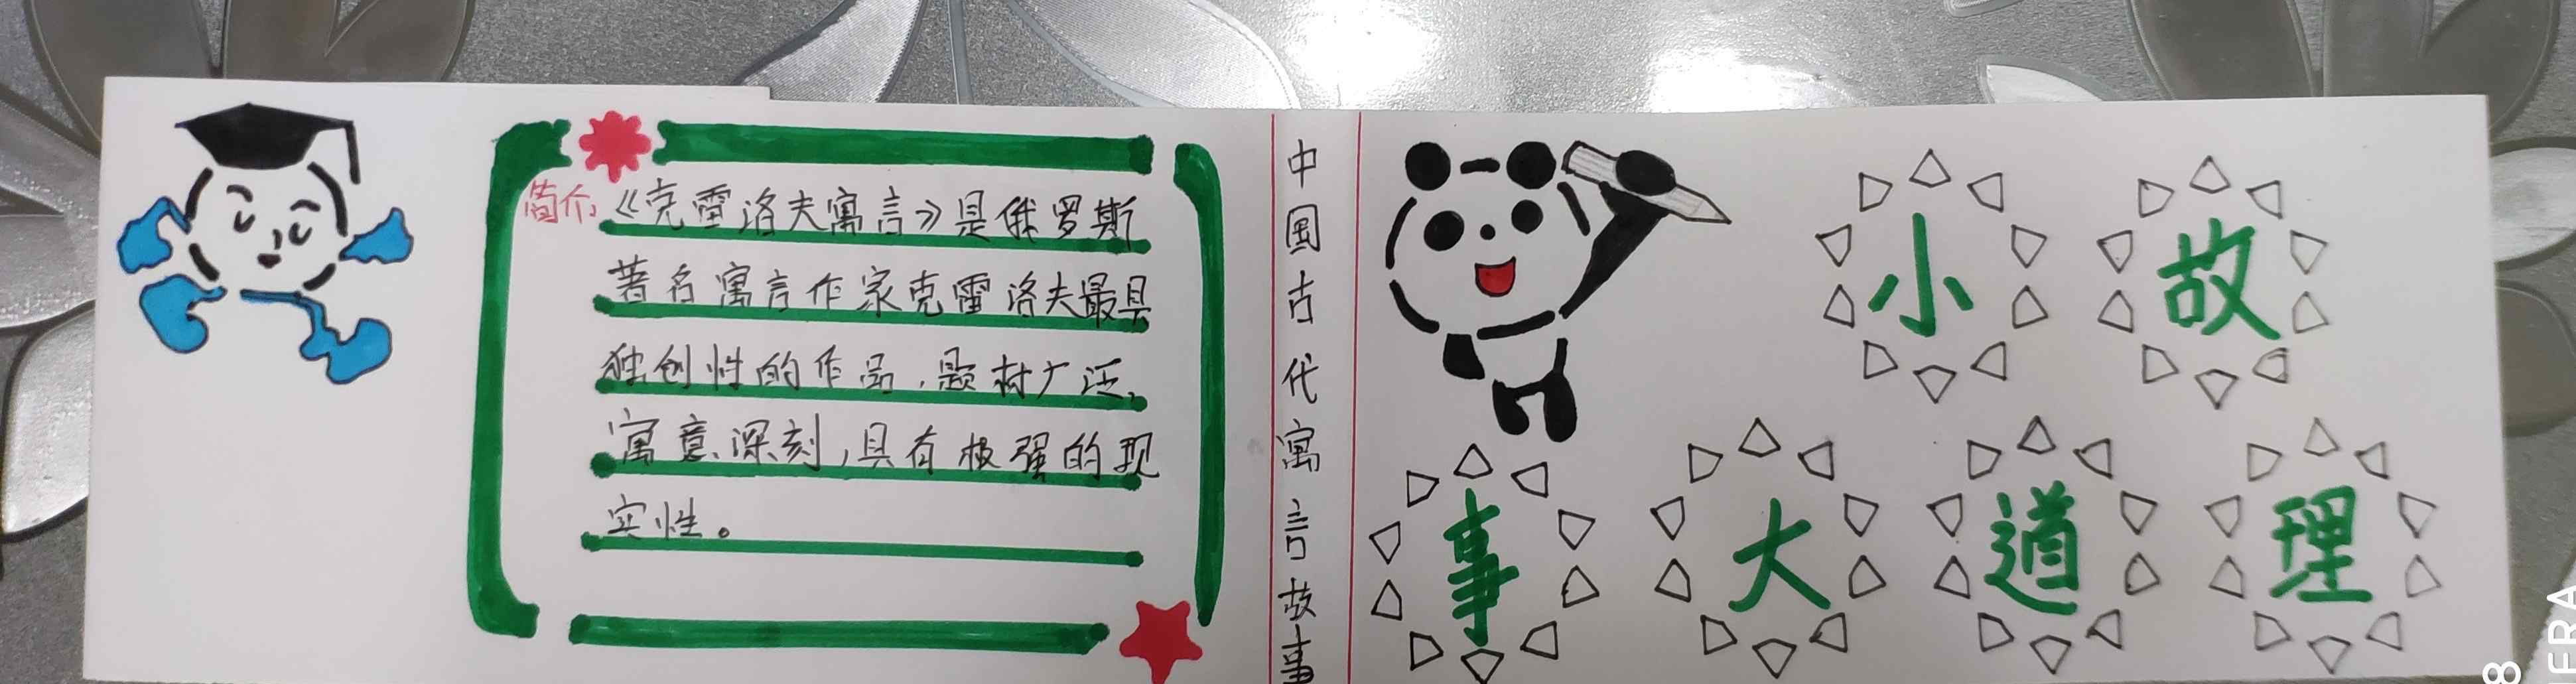 简介:《克雷洛夫寓言》是俄罗斯
著名寓言作家克雷洛夫最具
独创性的作品,题材广泛,
寓意深刻,具有极强的现
实性。
中国古代寓言故事
小故
事大道理